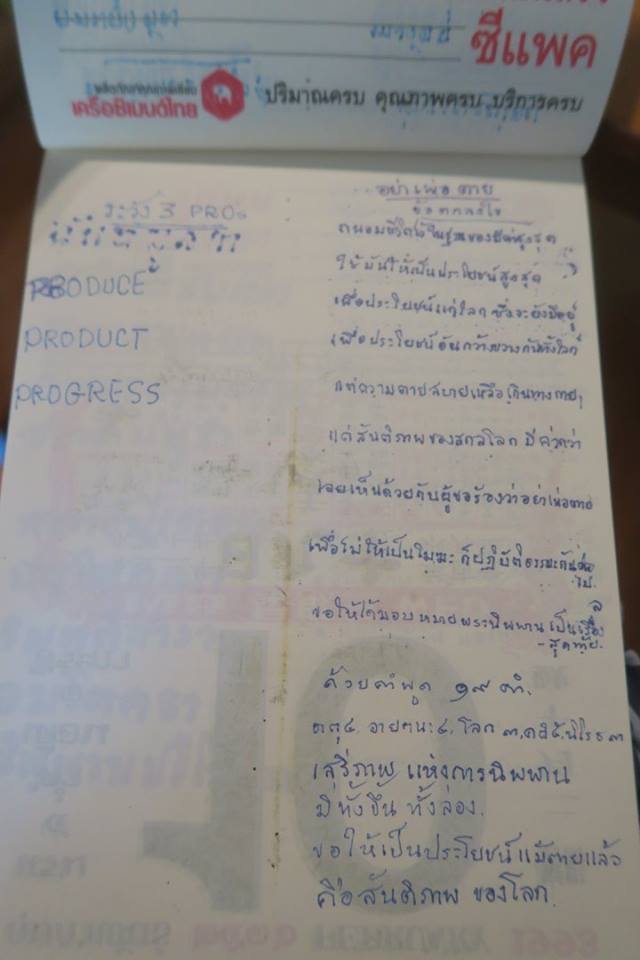 ซีแพค
เครือซิเมนต์ไทย
ปริมาณครบ คุณภาพครบ บริการครบ
ระวัง 3 PROs
PRODUCE
PRODUCT
PROGRESS
อย่าเพ่อตาย
ข้อตกลงใจ
ถนอมชีวิตไว้ในฐานะของมีค่าสูงสุด
ใช้มันให้เป็นประโยชน์สูงสุด
เพื่อประโยชน์แก่โลก ซึ่งจะยังมีอยู่
เพื่อประโยชน์อันกว้างขวางกันทั้งโลก
แต่ความตายสบายเหลือเกินทางกาย
แต่สันติภาพของสกลโลก มีค่ากว่า
เลยเห็นด้วยกับผู้ขอร้องว่าอย่าเพ่อตาย
เพื่อไม่ให้เป็นโมฆะ ก็ปฏิบัติธรรมะกันต่อไป
ขอให้ได้มอบหมายพระนิพพาน เป็นเรื่อง
-สุดท้าย-
ด้วยคำพูด ๑๙ คำ.
ธาตุ ๔, อายตนะ ๔, โลก ๓, คติ ๕, นิโรธ ๓
เสรีภาพ แห่งการนิพพาน
มีทั้งขึ้น ทั้งล่อง.
ขอให้เป็นประโยชน์แม้ตายแล้ว
คือสันติภาพ ของโลก.